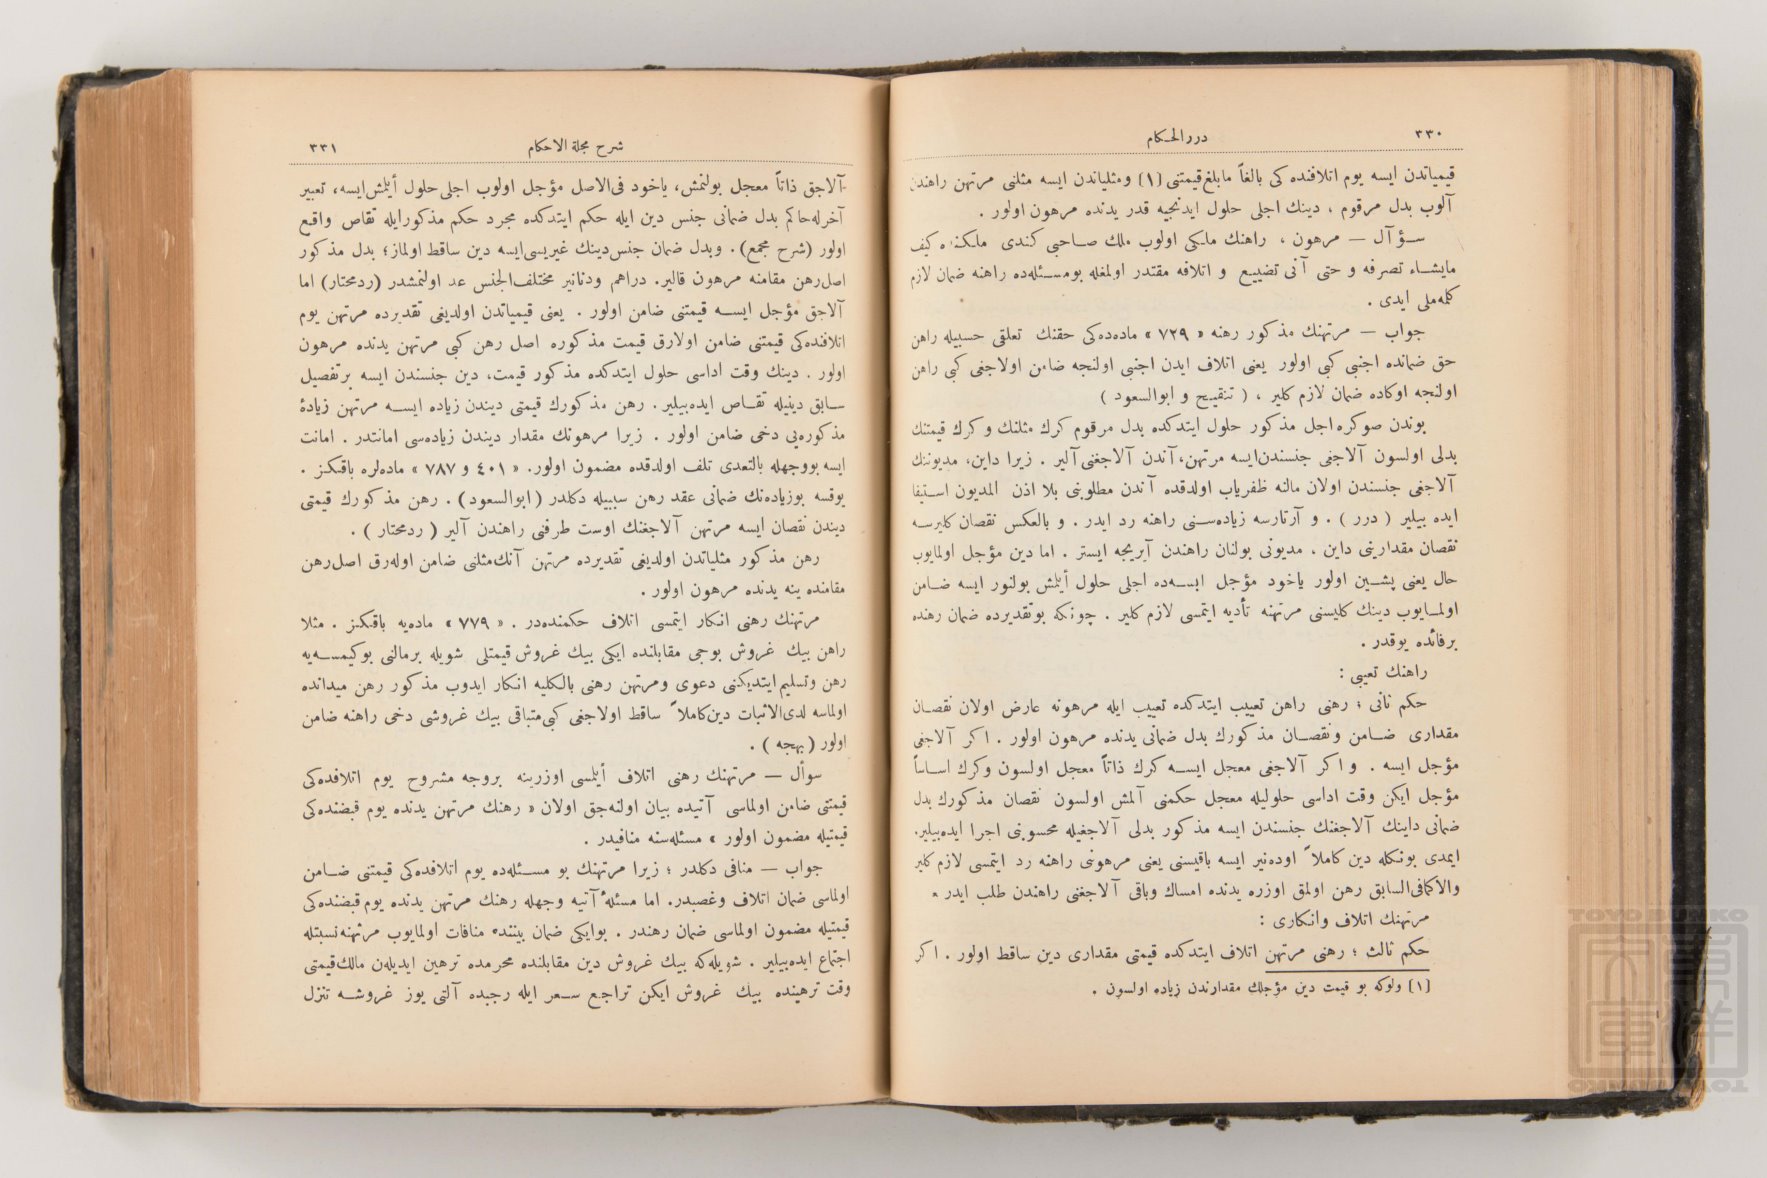 ٣٣٠
درر الحكام
قيمياتدن ايسه يوم اتلافنده كى بالغاً مابلغ قيمتنى (١) ومثلياتدن ايسه مثلنى مرتهن راهندن
آلوب بدل مرقوم ، دينك اجلى حلول ايدنجيه قدر يدنده مرهون اولور .
سؤآل — مرهون ، راهنك ملكى اولوب ملك صاحبى كندى ملكنده كيف
مايشاء تصرفه و حتى آنى تضييع و اتلافه مقتدر اولمغله بومسئله‌ده راهنه ضمان لازم
كلمه‌ملى ايدى .
جواب — مرتهنك مذكور رهنه « ٧٢٩ » ماده‌ده‌كى حقنك تعلقى حسبيله راهن
حق ضمانده اجنبى كبى اولور يعنى اتلاف ايدن اجنبى اولنجه ضامن اولاجغى كبى راهن
اولنجه اوكاده ضمان لازم كلير ، ( تنقيح و ابوالسعود )
بوندن صوكره اجل مذكور حلول ايتدكده بدل مرقوم كرك مثلنك وكرك قيمتنك
بدلى اولسون آلاجغى جنسندن ايسه مرتهن، آندن آلاجغنى آلير . زيرا داين، مديوننك
آلاجغى جنسندن اولان مالنه ظفرياب اولدقده آندن مطلوبنى بلا اذن المديون استيفا
ايده بيلير ( درر ) . و آرتارسه زياده‌سنى راهنه رد ايدر . و بالعكس نقصان كليرسه
نقصان مقدارينى داين ، مديونى بولنان راهندن آيريجه ايستر . اما دين مؤجل اولمايوب
حال يعنى پشين اولور ياخود مؤجل ايسه‌ده اجلى حلول أيلمش بولنور ايسه ضامن
اولمايوب دينك كليسنى مرتهنه تأديه ايتمسى لازم كلير . چونكه بوتقديرده ضمان رهنده
برفائده يوقدر .
راهنك تعيبى :
حكم ثانى ؛ رهنى راهن تعييب ايتدكده تعييب ايله مرهونه عارض اولان نقصان
مقدارى ضامن ونقصان مذكورك بدل ضمانى يدنده مرهون اولور . اكر آلاجغى
مؤجل ايسه . و اكر آلاجغى معجل ايسه كرك ذاتاً معجل اولسون وكرك اساساً
مؤجل ايكن وقت اداسى حلوليله معجل حكمنى آلمش اولسون نقصان مذكورك بدل
ضمانى داينك آلاجغنك جنسندن ايسه مذكور بدلى آلاجغيله محسوبنى اجرا ايده‌بيلير.
ايمدى بونكله دين كاملاً اوده‌نير ايسه باقيسنى يعنى مرهونى راهنه رد ايتمسى لازم كلير
والا كمافى‌السابق رهن اولمق اوزره يدنده امساك وباقى آلاجغنى راهندن طلب ايدر .
مرتهنك اتلاف وانكارى :
حكم ثالث ؛ رهنى مرتهن اتلاف ايتدكده قيمتى مقدارى دين ساقط اولور . اكر
(١) ولوكه بو قيمت دين مؤجلك مقدارندن زياده اولسون .
شرح مجلة الاحكام
٣٣١
آلاجق ذاتاً معجل بولنمش، ياخود فى‌الاصل مؤجل اولوب اجلى حلول أيلمش ايسه، تعبير
آخرله حاكم بدل ضمانى جنس دين ايله حكم ايتدكده مجرد حكم مذكورايله تقاص واقع
اولور (شرح مجمع) . وبدل ضمان جنس‌دينك غيريسى ايسه دين ساقط اولماز؛ بدل مذكور
اصل‌رهن مقامنه مرهون قالير. دراهم ودنانير مختلف‌الجنس عد اولنمشدر (ردمحتار) اما
آلاجق مؤجل ايسه قيمتنى ضامن اولور . يعنى قيمياتدن اولديغى تقديرده مرتهن يوم
اتلافنده‌كى قيمتنى ضامن اولارق قيمت مذكوره اصل رهن كبى مرتهن يدنده مرهون
اولور . دينك وقت اداسى حلول ايتدكده مذكور قيمت، دين جنسندن ايسه برتفصيل
سابق دينيله تقاص ايده‌بيلير . رهن مذكورك قيمتى ديندن زياده ايسه مرتهن زيادهٔ
مذكوره‌يى دخى ضامن اولور . زيرا مرهونك مقدار ديندن زياده‌سى امانتدر . امانت
ايسه بووجهله بالتعدى تلف اولدقده مضمون اولور. « ٤٠١ و ٧٨٧ » ماده‌لره باقكز .
يوقسه بوزياده‌نك ضمانى عقد رهن سببيله دكلدر (ابوالسعود) . رهن مذكورك قيمتى
ديندن نقصان ايسه مرتهن آلاجغنك اوست طرفنى راهندن آلير ( ردمحتار ) .
رهن مذكور مثلياتدن اولديغى تقديرده مرتهن آنك‌مثلنى ضامن اوله‌رق اصل‌رهن
مقامنده ينه يدنده مرهون اولور .
مرتهنك رهنى انكار ايتمسى اتلاف حكمنده‌در . « ٧٧٩ » ماده‌يه باقكز . مثلا
راهن بيك غروش بورجى مقابلنده ايكى بيك غروش قيمتلى شويله برمالنى بوكيمسه‌يه
رهن وتسليم ايتديكنى دعوى ومرتهن رهنى بالكليه انكار ايدوب مذكور رهن ميدانده
اولماسه لدى‌الاثبات دين‌كاملاً ساقط اولاجغى كبى‌متباقى بيك غروشى دخى راهنه ضامن
اولور ( بهجه ) .
سوأل — مرتهنك رهنى اتلاف أيلمسى اوزرينه بروجه مشروح يوم اتلافده‌كى
قيمتنى ضامن اولماسى آتيده بيان اولنه‌جق اولان « رهنك مرتهن يدنده يوم قبضنده‌كى
قيمتيله مضمون اولور » مسئله‌سنه منافيدر .
جواب — منافى دكلدر ؛ زيرا مرتهنك بو مسئله‌ده يوم اتلافده‌كى قيمتنى ضامن
اولماسى ضمان اتلاف وغصبدر. اما مسئلهٔ آتيه وجهله رهنك مرتهن يدنده يوم قبضنده‌كى
قيمتيله مضمون اولماسى ضمان رهندر . بوايكى ضمان بيننده منافات اولمايوب مرتهنه نسبتله
اجتماع ايده‌بيلير . شويله‌كه بيك غروش دين مقابلنده محرمده ترهين ايديلن مالك‌قيمتى
وقت ترهينده بيك غروش ايكن تراجع سعر ايله رجبده آلتى يوز غروشه تنزل
TOYO BUNKO